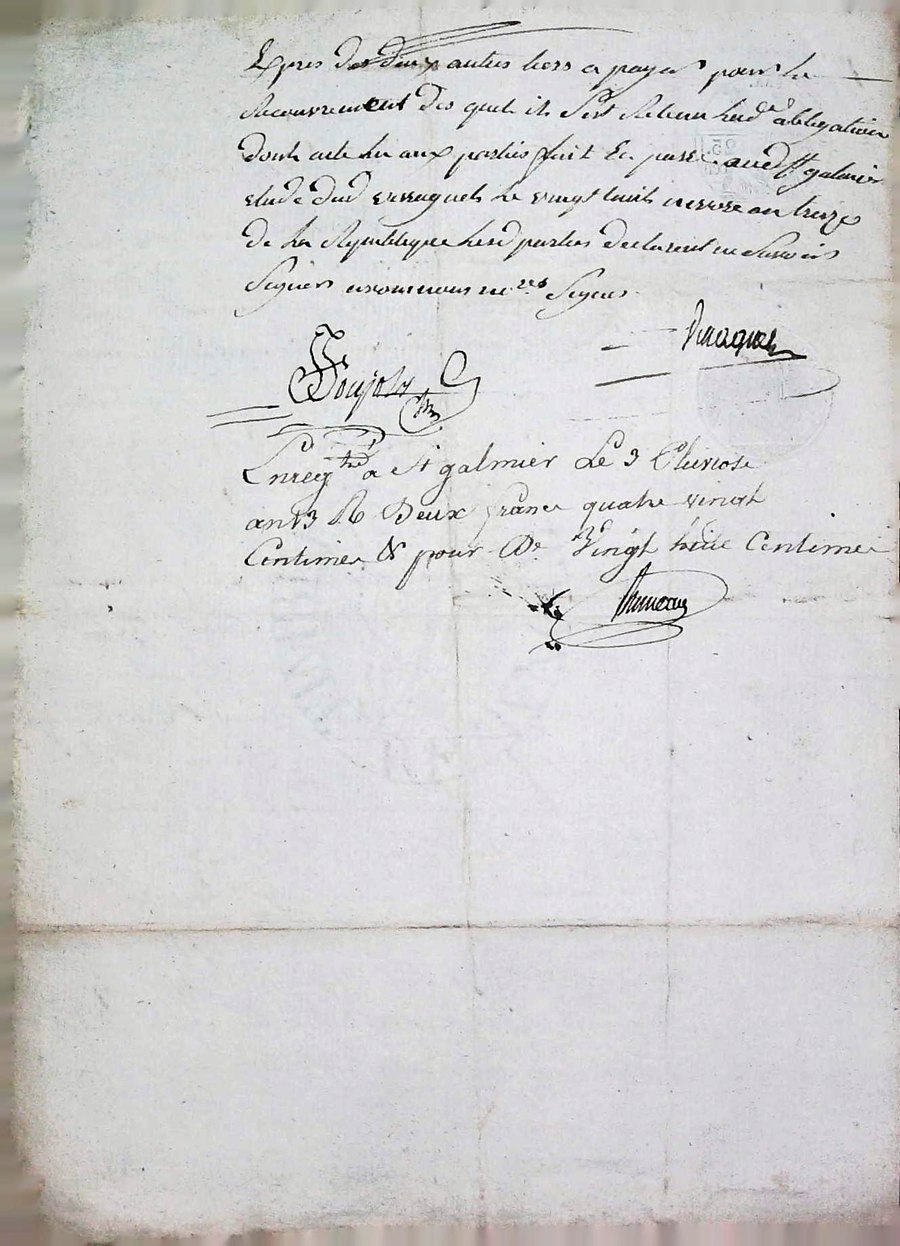 Expres des deux autres tiers a payer pour le
Recouvrement des quel il s'est Retenu lad.e obligation
dont acte lu aux parties fait Et passé aud St galmier
etude dud verraquet le vingt huit nivose an treize
de la Republique lesd parties declarent ne savoir
Signer avons nous no.res Signes
Poujols
Enreg.tré a St galmier Le 3 Pluviose
an 13 R Deux franc quatre vingt
Centimes & pour D.e Vingt huit Centimes